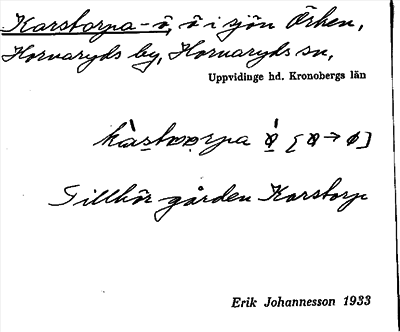 Karstorpa-ö, ö i sjön Örken,
Hornaryds by, Hornaryds sn,
Uppvidinge hd. Kronobergs län
Tillhör gården Karstorp
Erik Johannesson 1933